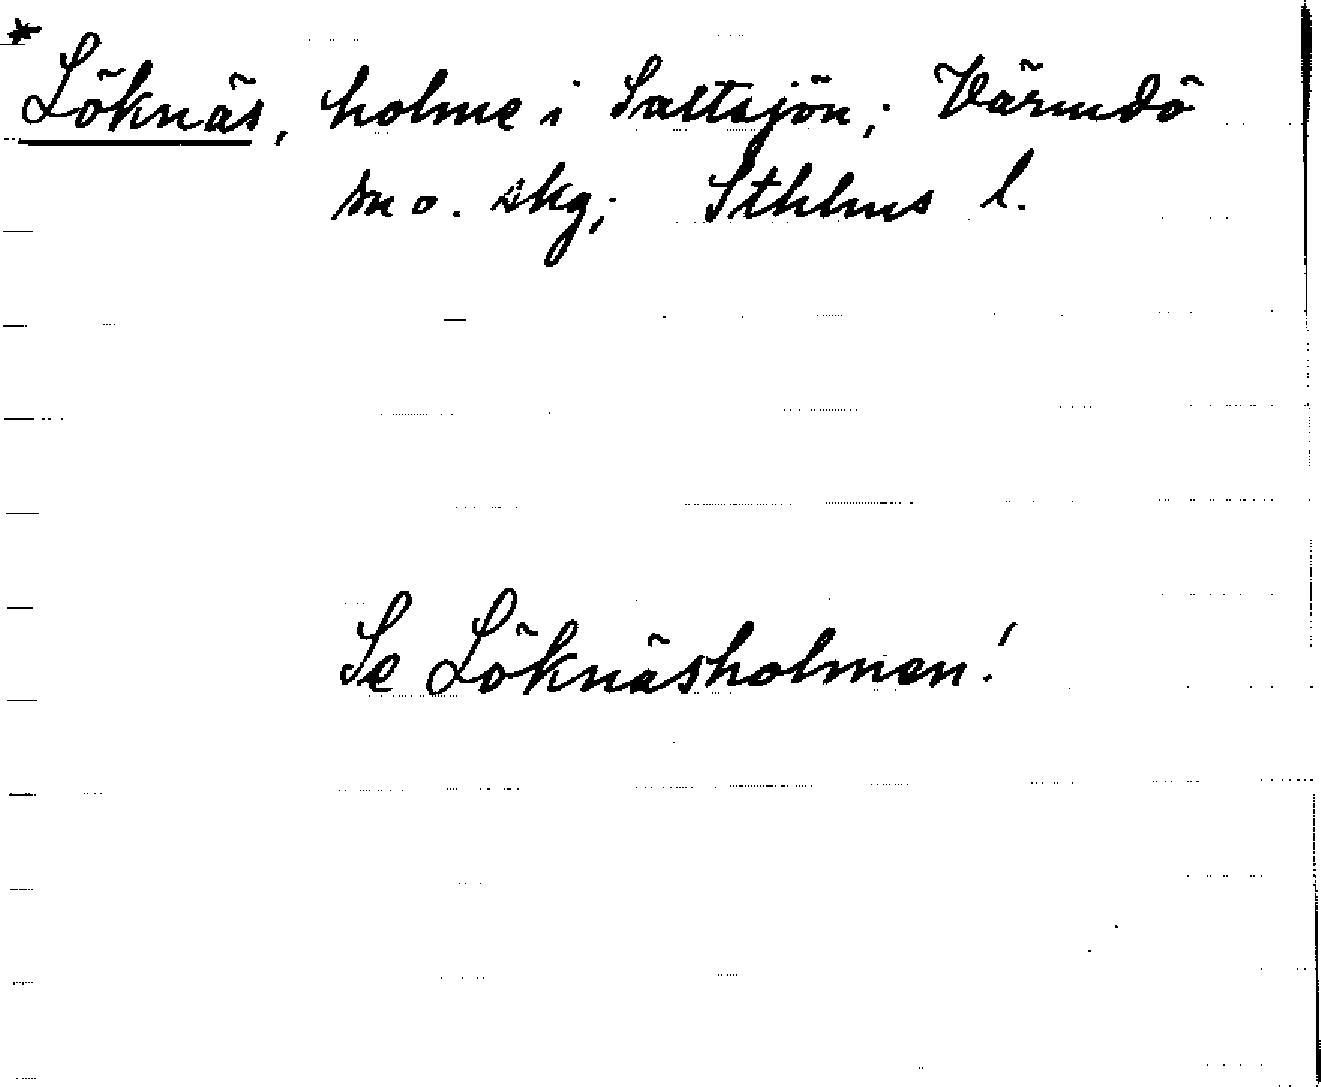 * Löknäs, holme i Saltsjön; Värmdö
sn o. skg; Sthlms l.
Se Löknäsholmen!